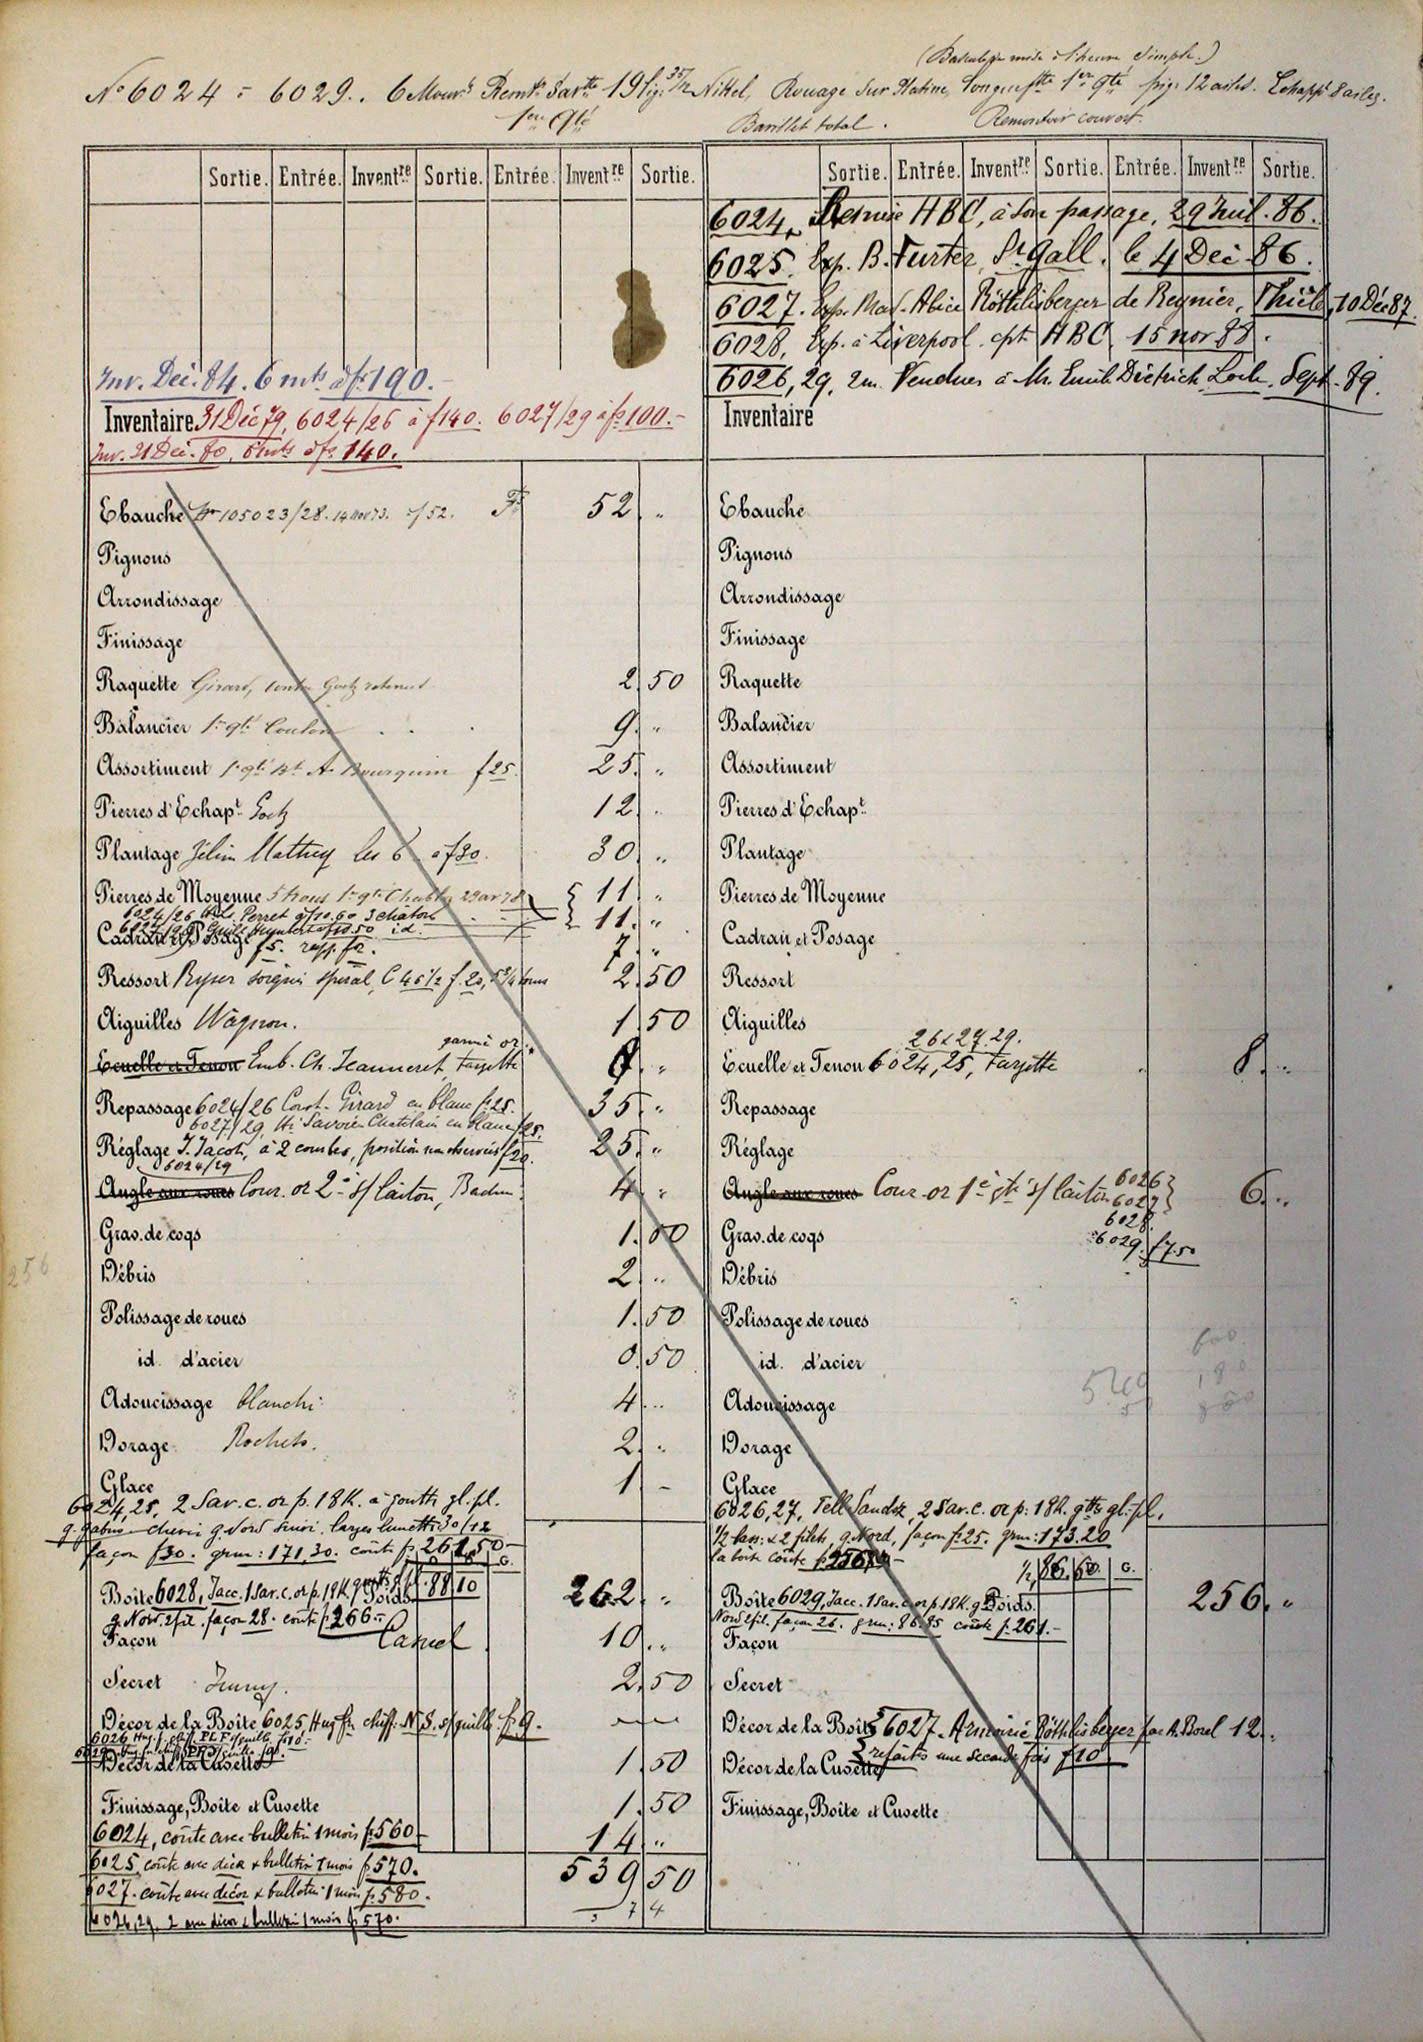 (Bascule mise à l'heure simple.)
No 6024 = 6029. 6 Mouvts Remtr Savtte 19 lig: Nikel, Rouage sur Platine, 1er qté pig: 12 ailes. Echappt 8 ailes.
1ere Qté Barillet total. Remontoir couvert.
Sortie. Entrée. Inventre Sortie. Entrée. Inventre Sortie.
Sortie. Entrée. Inventre Sortie. Entrée. Inventre Sortie.
6024, Remise HBC, à son passage, 29 Juil. 86.
6025. Exp. B. Furter, St Gall. le 4 Déc 86.
6027. Exp. Mad. Alice Röthlisberger de Reynier, Thièle, 10 Déc 87.
6028, Exp. à Liverpool. cpt HBC, 15 nov 88.
6026, 29, 2 m. Vendues à Mr. Emile Dietrich, Locle, Sept. 89.
Inv. Déc. 84. 6 mts à f. 190.-
Inventaire 31 Déc 79, 6024/26 à f 140. 6027/29 à f. 100.-
Inv. 31 Déc. 80, 6 mts à f. 140.
Inventaire
Ebauche 105023/28. 14 Nov 73. f 52. F 52 "
Pignons
Arrondissage
Finissage
Raquette Girard, 2.50
Balancier 1r qté Coulon 9. "
Assortiment 1r qté A. Bourquin f 25. 25. "
Pierres d'Echapt Goetz 12. "
Plantage Zélim Mathey les 6 à f 30. 30. "
Pierres de Moyenne 5 trous 1r qté Chatelain 11 "
6024/26 Perret à f 10.50 3 châtons 11. "
6027/29 f 10.50 id.
Cadran et Posage f 5. f 2. 7. "
Ressort Ryser soigné spiral, C 46 1/2 f. 20, 5 3/4 tours 2.50
Aiguilles Wagnon. 1.50
garni or
Ecuelle et Tenon Emb. Ch. Jeanneret, targette "
Repassage 6024/26 Const. Girard en blanc f. 25. 35. "
6027/29, Hi Savoie-Chatelain en blanc f 25.
Réglage J. Jacot, à 2 courbes, position non observées f 20. 25. "
6024/29
Angle aux roues Cour. or 2e s/ laiton, Bachm. 4. "
Grav. de coqs 1.50
Débris 2. "
Polissage de roues 1.50
id. d'acier 0.50
Adoucissage blanchi 4. "
Dorage Rochets. 2. "
Glace 1 -
6024, 25, 2 Sav. c. or p. 18 K. à goutte gl. pl.
q. Nord suivi larges lunettes 30/12
façon f 30. grm: 171,30. coûte f. 261.50 -
G.
Boîte 6028, Jacc. 1 Sav. c. or p. 18 K Poids 88 10 262. "
q. Nord. 2 fil. façon 28. coûte f. 266.-
Façon Camel 10. "
Secret Junny. 2.50
Décor de la Boîte 6025, Hug fr. chiff. N.S. s/ guill. f. 9.
Décor de la Cuvette 1.50
Finissage, Boîte et Cuvette 1.50
6024, coûte avec bulletin 1 mois f. 560 14 "
6025, coûte avec décor & bulletin 1 mois f. 570. 539 50
6027. coûte avec décor & bulletin 1 mois f. 580.
6026, 29. 2 avec décor & bulletin 1 mois f. 570.
Ebauche
Pignons
Arrondissage
Finissage
Raquette
Balancier
Assortiment
Pierres d'Echapt
Plantage
Pierres de Moyenne
Cadran et Posage
Ressort
Aiguilles
26 & 27. 29.
Ecuelle et Tenon 6024, 25, targette 8. "
Repassage
Réglage
Angle aux roues Cour. or 1e qté s/ laiton 6026 6027 6. "
6028.
6029. f 7.50
Grav. de coqs
Débris
Polissage de roues
id. d'acier
Adoucissage
Dorage
Glace
6026, 27, Tell Sandoz, 2 Sav. c. or p: 18 K. gtte gl. pl.
1/2 bass: & 2 filets, q. Nord, façon f. 25. grm: 173.20
la boîte coûte f. 256 -
1/2 86. 60. G.
Boîte 6029, Jacc. 1 Sav. c. or p. 18 K. Poids. 256. "
Nord 2 fil. façon 26. grm: 86.85 coûte f. 261.-
Façon
Secret
Décor de la Boîte 6027. Armoirie Röthlisberger par A. Borel 12. "
refaites une seconde fois f 10
Décor de la Cuvette
Finissage, Boîte et Cuvette
256